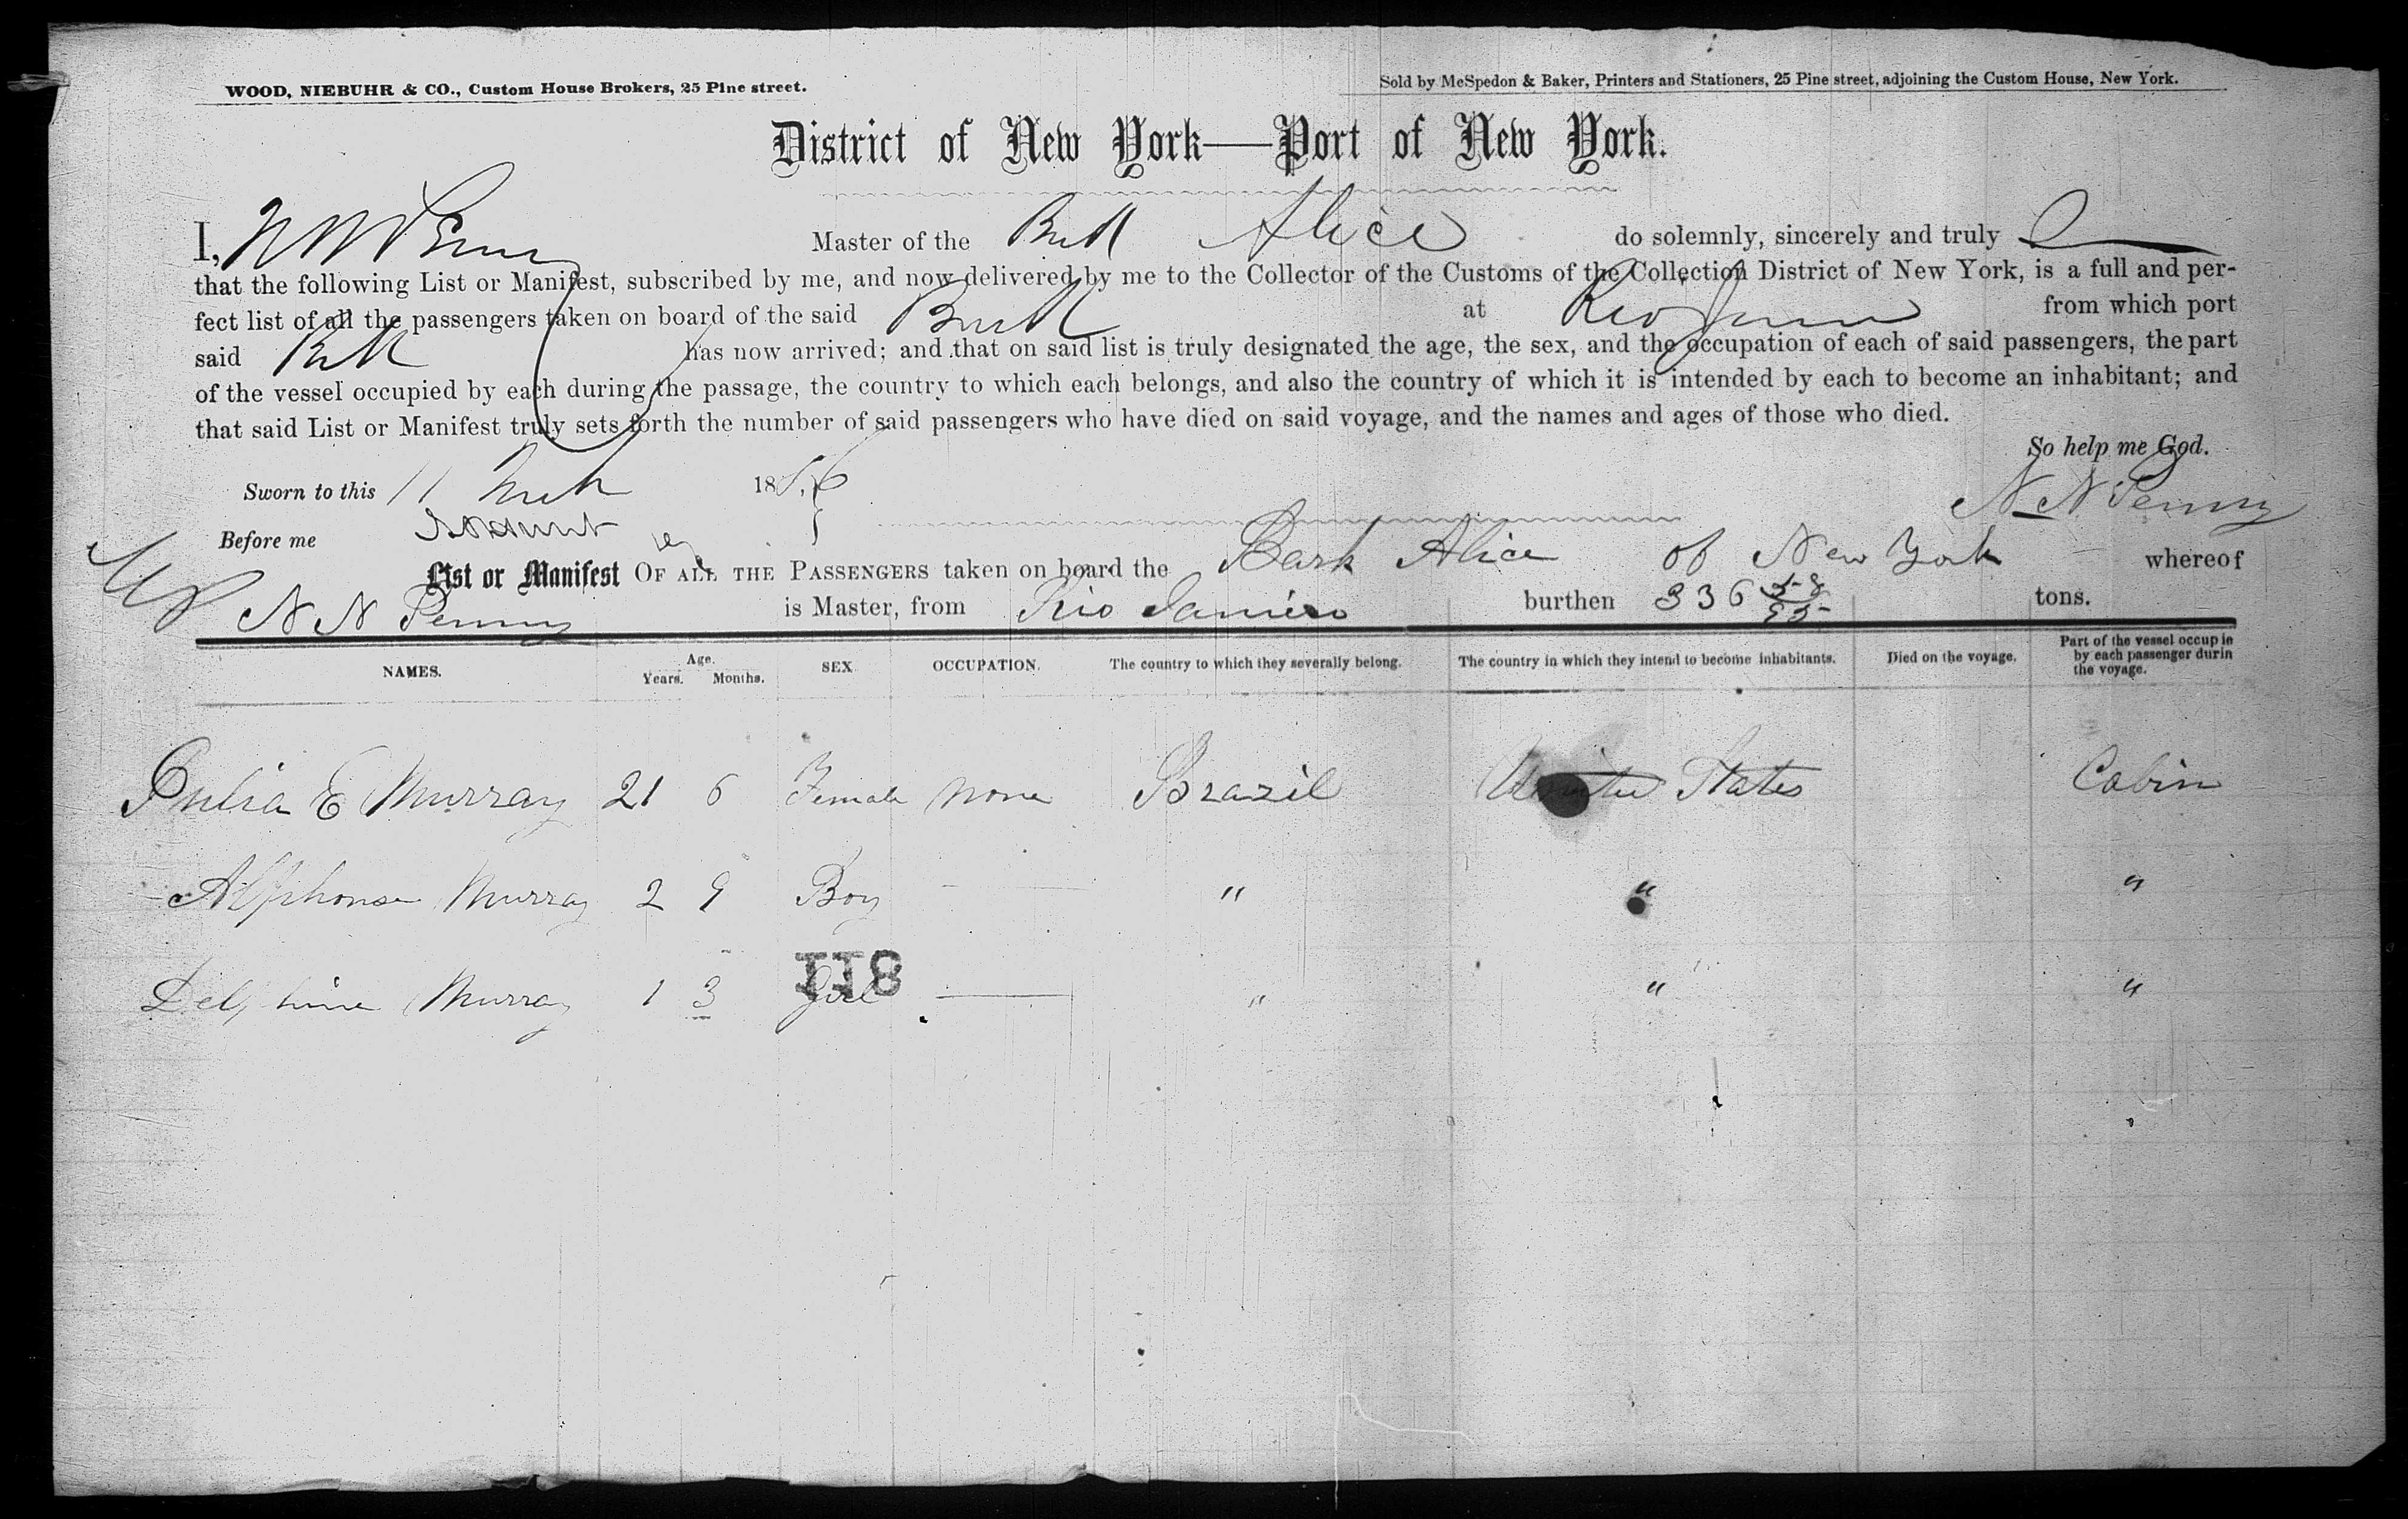 WOOD, NIEBUHR & CO., Custom House Brokers, 25 Pine street.
Sold by McSpedon & Baker, Printers and Stationers, 25 Pine street, adjoining the Custom House, New York.
District of New York—Port of New York.
I, N N Penny Master of the Alice do solemnly, sincerely and truly
that the following List or Manifest, subscribed by me, and now delivered by me to the Collector of the Customs of the Collection District of New York, is a full and per-
fect list of all the passengers taken on board of the said at Rio Janeiro from which port
said has now arrived; and that on said list is truly designated the age, the sex, and the occupation of each of said passengers, the part
of the vessel occupied by each during the passage, the country to which each belongs, and also the country of which it is intended by each to become an inhabitant; and
that said List or Manifest truly sets forth the number of said passengers who have died on said voyage, and the names and ages of those who died.
So help me God.
Sworn to this 11 186
N N Penny
Before me
List or Manifest OF ALL THE PASSENGERS taken on board the Bark Alice of New York whereof
N N Penny is Master, from Rio Janiero burthen 336 58/95 tons.
NAMES. Age. Years. Months. SEX OCCUPATION. The country to which they severally belong. The country in which they intend to become inhabitants. Died on the voyage. Part of the vessel occup in by each passenger durin the voyage.
Julia E Murray 21 6 Female None Brazil United States Cabin
Alphonse Murray 2 9 Boy " " "
Delphine Murray 1 3 Girl " " "
118